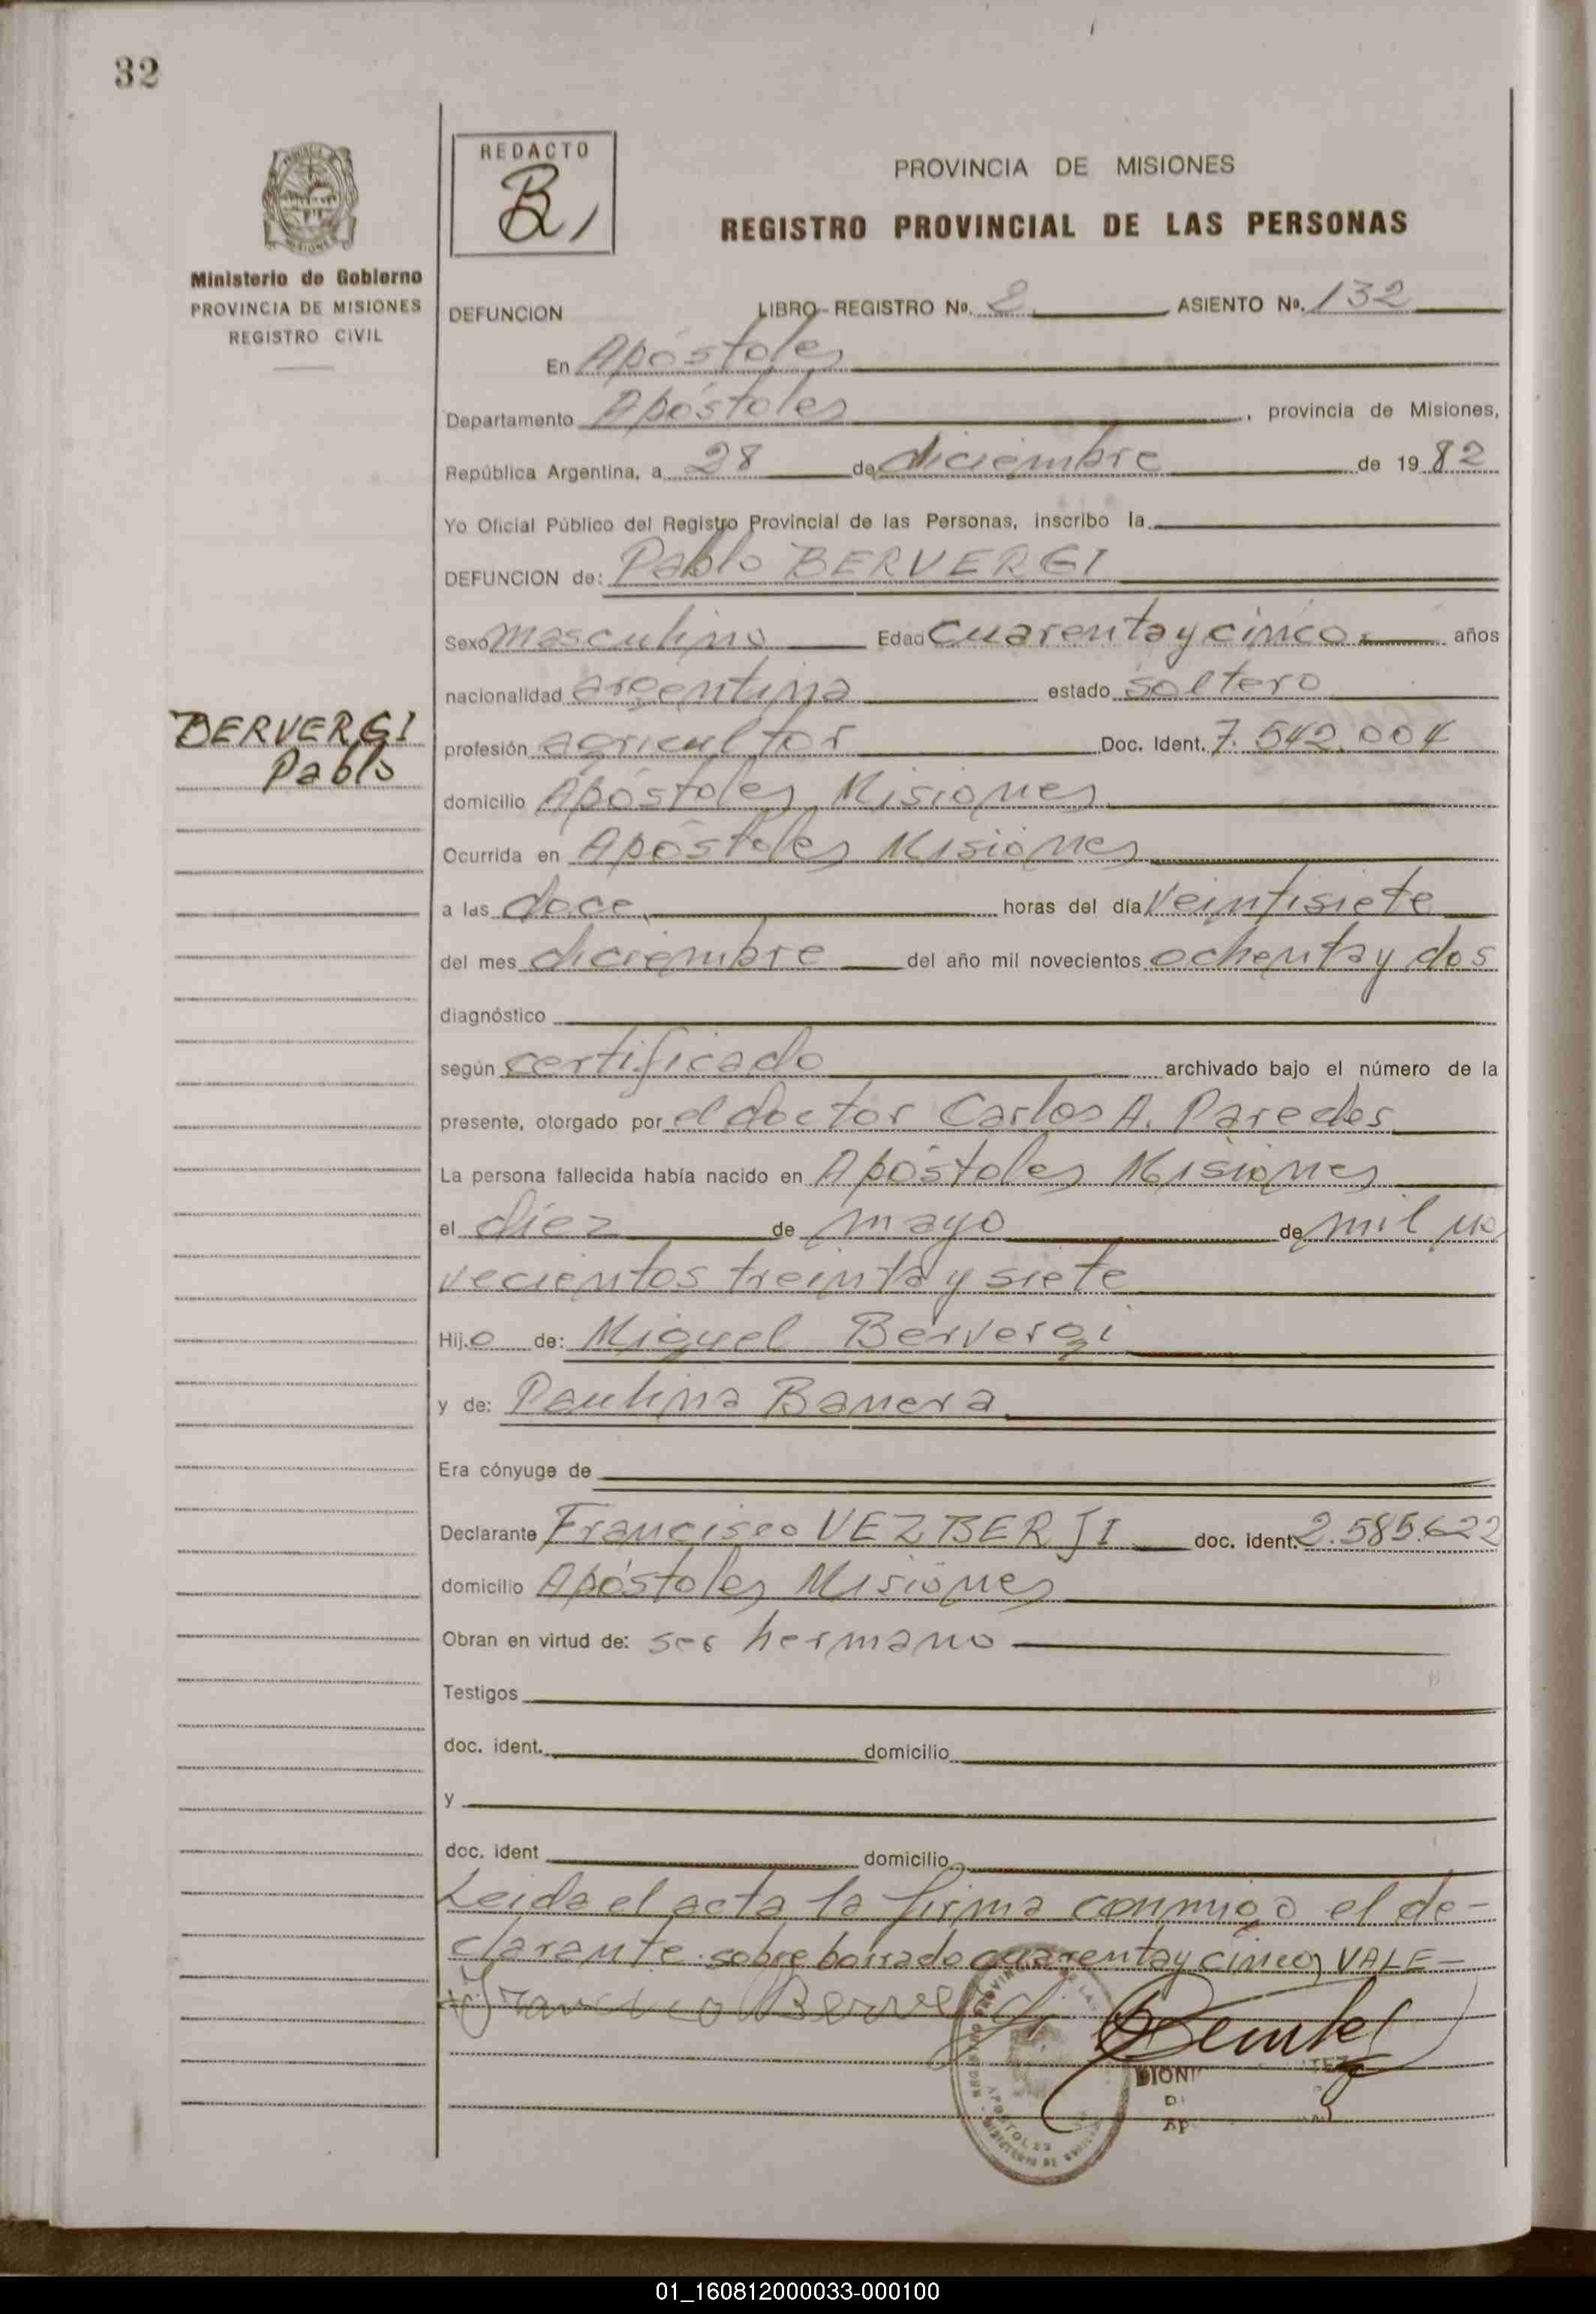 32
REDACTO
B,
PROVINCIA DE MISIONES
REGISTRO PROVINCIAL DE LAS PERSONAS
Ministerio de Gobierno
PROVINCIA DE MISIONES
REGISTRO CIVIL
DEFUNCION LIBRO-REGISTRO No. 2 ASIENTO No. 132
En Apóstoles
Departamento Apóstoles, provincia de Misiones,
República Argentina, a 28 de diciembre de 1982
Yo Oficial Público del Registro Provincial de las Personas, inscribo la
DEFUNCION de: Pablo BERVERGI
Sexo masculino Edad cuarenta y cinco años
nacionalidad argentina estado soltero
BERVERGI
Pablo
profesión agricultor Doc. Ident. 7.542.004
domicilio Apóstoles Misiones
Ocurrida en Apóstoles Misiones
a las doce horas del día veintisiete
del mes diciembre del año mil novecientos ochenta y dos
diagnóstico
según certificado archivado bajo el número de la
presente, otorgado por el doctor Carlos A. Paredes
La persona fallecida había nacido en Apóstoles Misiones
el diez de mayo de mil no
vecientos treinta y siete
Hijo de: Miguel Bervergi
y de: Paulina Banera
Era cónyuge de
Declarante Francisco VEZBERJI doc. ident. 2.585.622
domicilio Apóstoles Misiones
Obran en virtud de: ser hermano
Testigos
doc. ident. domicilio
y
doc. ident domicilio
Leida el acta la firma conmigo el de-
clarante. sobre borrado cuarenta y cinco, VALE-
APOSTOLES
01_160812000033-000100